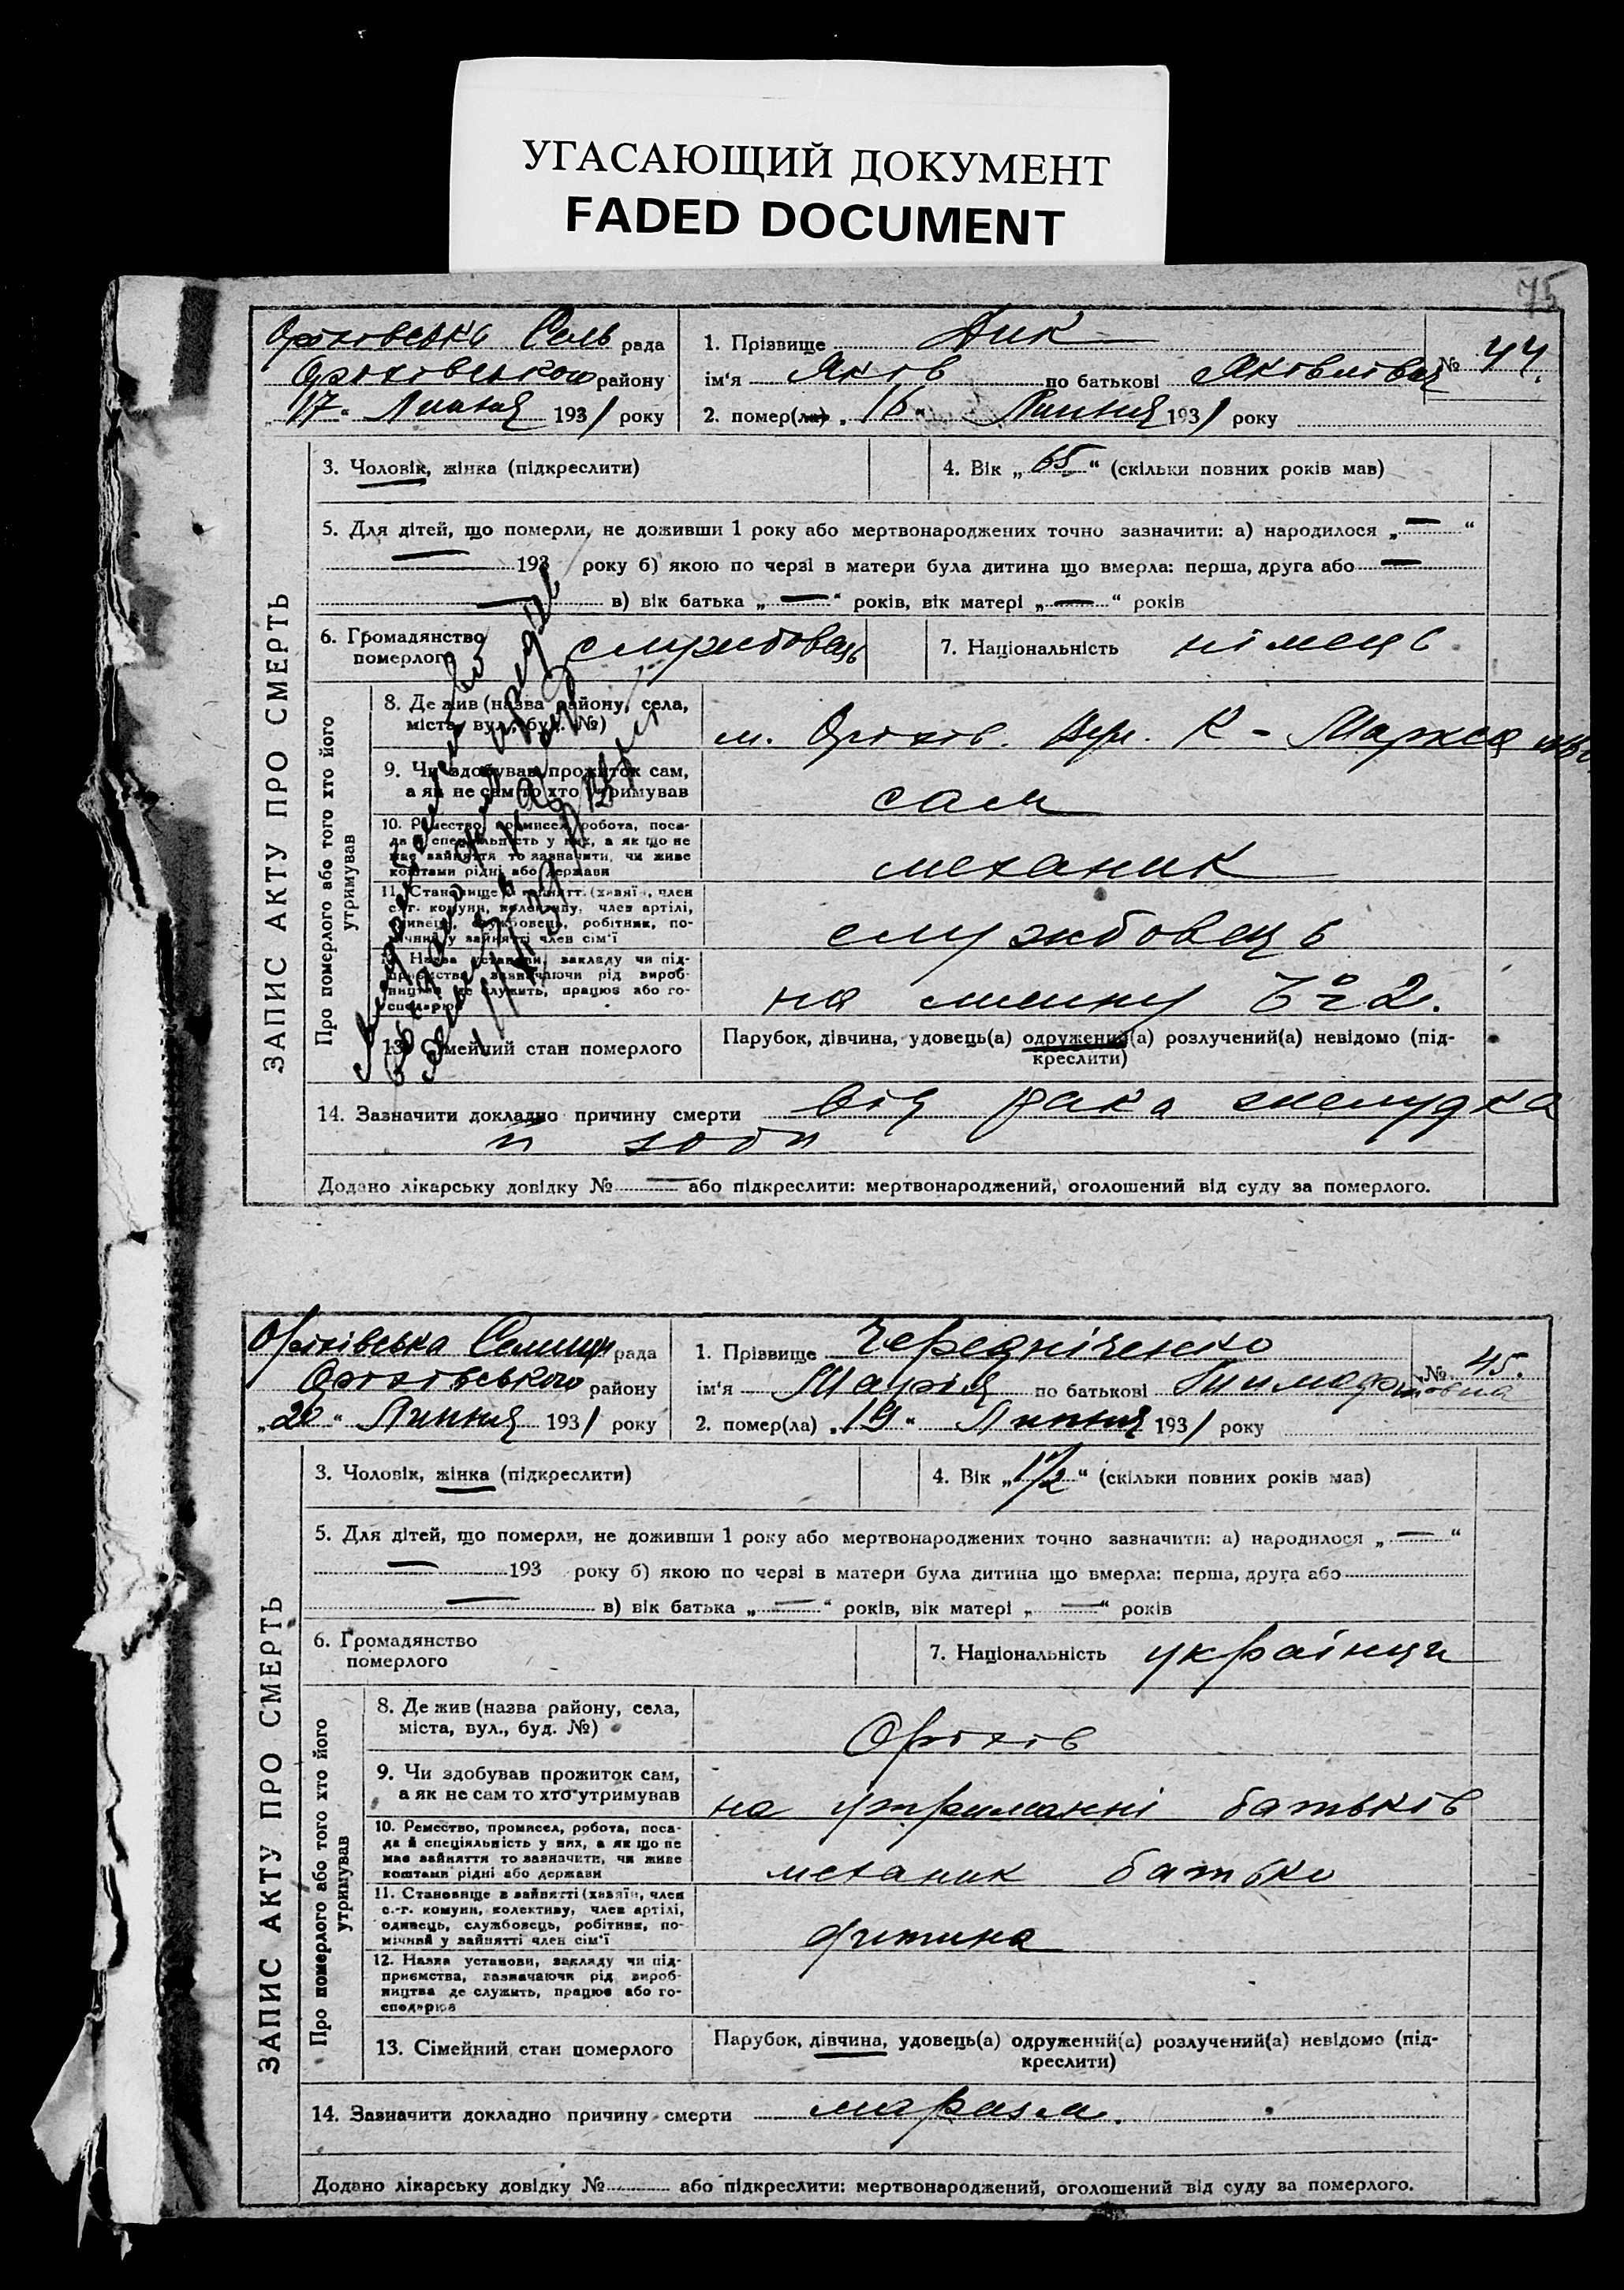 УГАСАЮЩИЙ ДОКУМЕНТ
FADED DOCUMENT
75
Оріхівська Сель рада
Оріхівського району
„17“ Липня 1931 року
1. Прізвище Дик
№ 44.
ім'я Яків по батькові Яковлевич
2. помер(ла) „16“ Липня 1931 року
ЗАПИС АКТУ ПРО СМЕРТЬ
3. Чоловік, жінка (підкреслити)
4. Вік „65“ (скільки повних років мав)
5. Для дітей, що померли, не доживши 1 року або мертвонароджених точно зазначити: а) народилося „—“
— 193 року б) якою по черзі в матери була дитина що вмерла: перша, друга або —
— в) вік батька „—“ років, вік матері „—“ років
6. Громадянство
померлого
службовець
7. Національність німець
Про померлого або того хто його
утримував
8. Де жив (назва району, села,
міста, вул., буд. №)
м. Оріхів. Вул. К-Маркса
9. Чи здобував прожиток сам,
а як не сам то хто утримував
сам
10. Ремество, промисел, робота, поса-
да й спеціяльність у них, а як що не
має зайняття то зазначити, чи живе
коштами рідні або держави
механик
11. Становище в зайнятті (хазяїн, член
с.-г. комуни, колективу, член артілі,
одинець, службовець, робітник, по-
мічний у зайнятті член сім'ї
службовець
12. Назва установи, закладу чи під-
приємства, зазначаючи рід вироб-
ництва де служить, працює або го-
сподарює
на млину № 2.
13. Сімейний стан померлого
Парубок, дівчина, удовець(а) одружений(а) розлучений(а) невідомо (під-
креслити)
14. Зазначити докладно причину смерти від рака желудка
Додано лікарську довідку № — або підкреслити: мертвонароджений, оголошений від суду за померлого.
Оріхівська Селищн рада
Оріхівського району
„20“ Липня 1931 року
1. Прізвище Чередніченко
№ 45.
ім'я Марія по батькові Тимофіівна
2. помер(ла) „19“ Липня 1931 року
ЗАПИС АКТУ ПРО СМЕРТЬ
3. Чоловік, жінка (підкреслити)
4. Вік „1 1/2“ (скільки повних років мав)
5. Для дітей, що померли, не доживши 1 року або мертвонароджених точно зазначити: а) народилося „—“
— 193 року б) якою по черзі в матери була дитина що вмерла: перша, друга або
— в) вік батька „—“ років, вік матері „—“ років
6. Громадянство
померлого
7. Національність українци
Про померлого або того хто його
утримував
8. Де жив (назва району, села,
міста, вул., буд. №)
Оріхів
9. Чи здобував прожиток сам,
а як не сам то хто утримував
на утриманні батьків
10. Ремество, промисел, робота, поса-
да й спеціяльність у них, а як що не
має зайняття то зазначити, чи живе
коштами рідні або держави
механик батько
11. Становище в зайнятті (хазяїн, член
с.-г. комуни, колективу, член артілі,
одинець, службовець, робітник, по-
мічний у зайнятті член сім'ї
дитина
12. Назва установи, закладу чи під-
приємства, зазначаючи рід вироб-
ництва де служить, працює або го-
сподарює
13. Сімейний стан померлого
Парубок, дівчина, удовець(а) одружений(а) розлучений(а) невідомо (під-
креслити)
14. Зазначити докладно причину смерти маразм.
Додано лікарську довідку № або підкреслити: мертвонароджений, оголошений від суду за померлого.